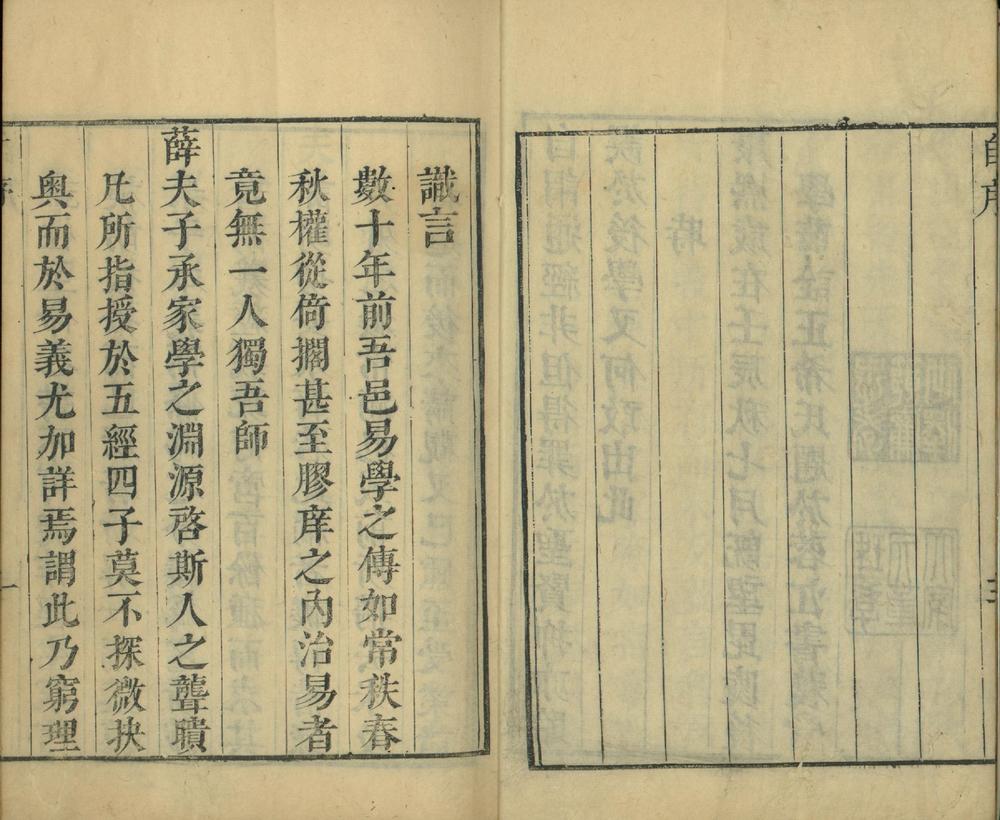 識言
數十年前吾邑易學之傳如常秩春
秋權從倚擱甚至膠庠之內治易者
竟無一人獨吾師
薛夫子承家學之淵源啓斯人之聾聵
凡所指授於五經四子莫不探微抉
奧而於易義尤加詳焉謂此乃窮理
一